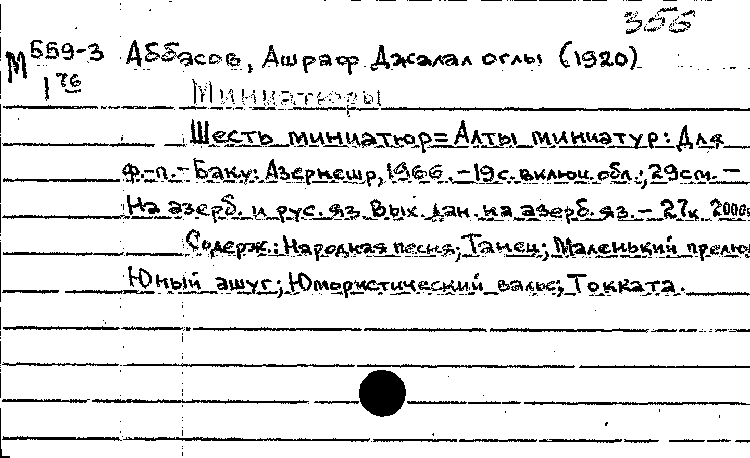 356
М 559-3 Аббасов, Ашраф Джалал оглы (1920)
1 76
Миниатюры
Шесть миниатюр = Алты миниатур: Для
ф.-п. - Баку: Азернешр, 1966. - 19с. включ. обл.; 29см. -
На азерб. и рус. яз. Вых. дан. на азерб. яз. - 27к. 2000э
Содерж.: Народная песня; Танец; Маленький прелю
Юный ашуг; Юмористический вальс; Токката.